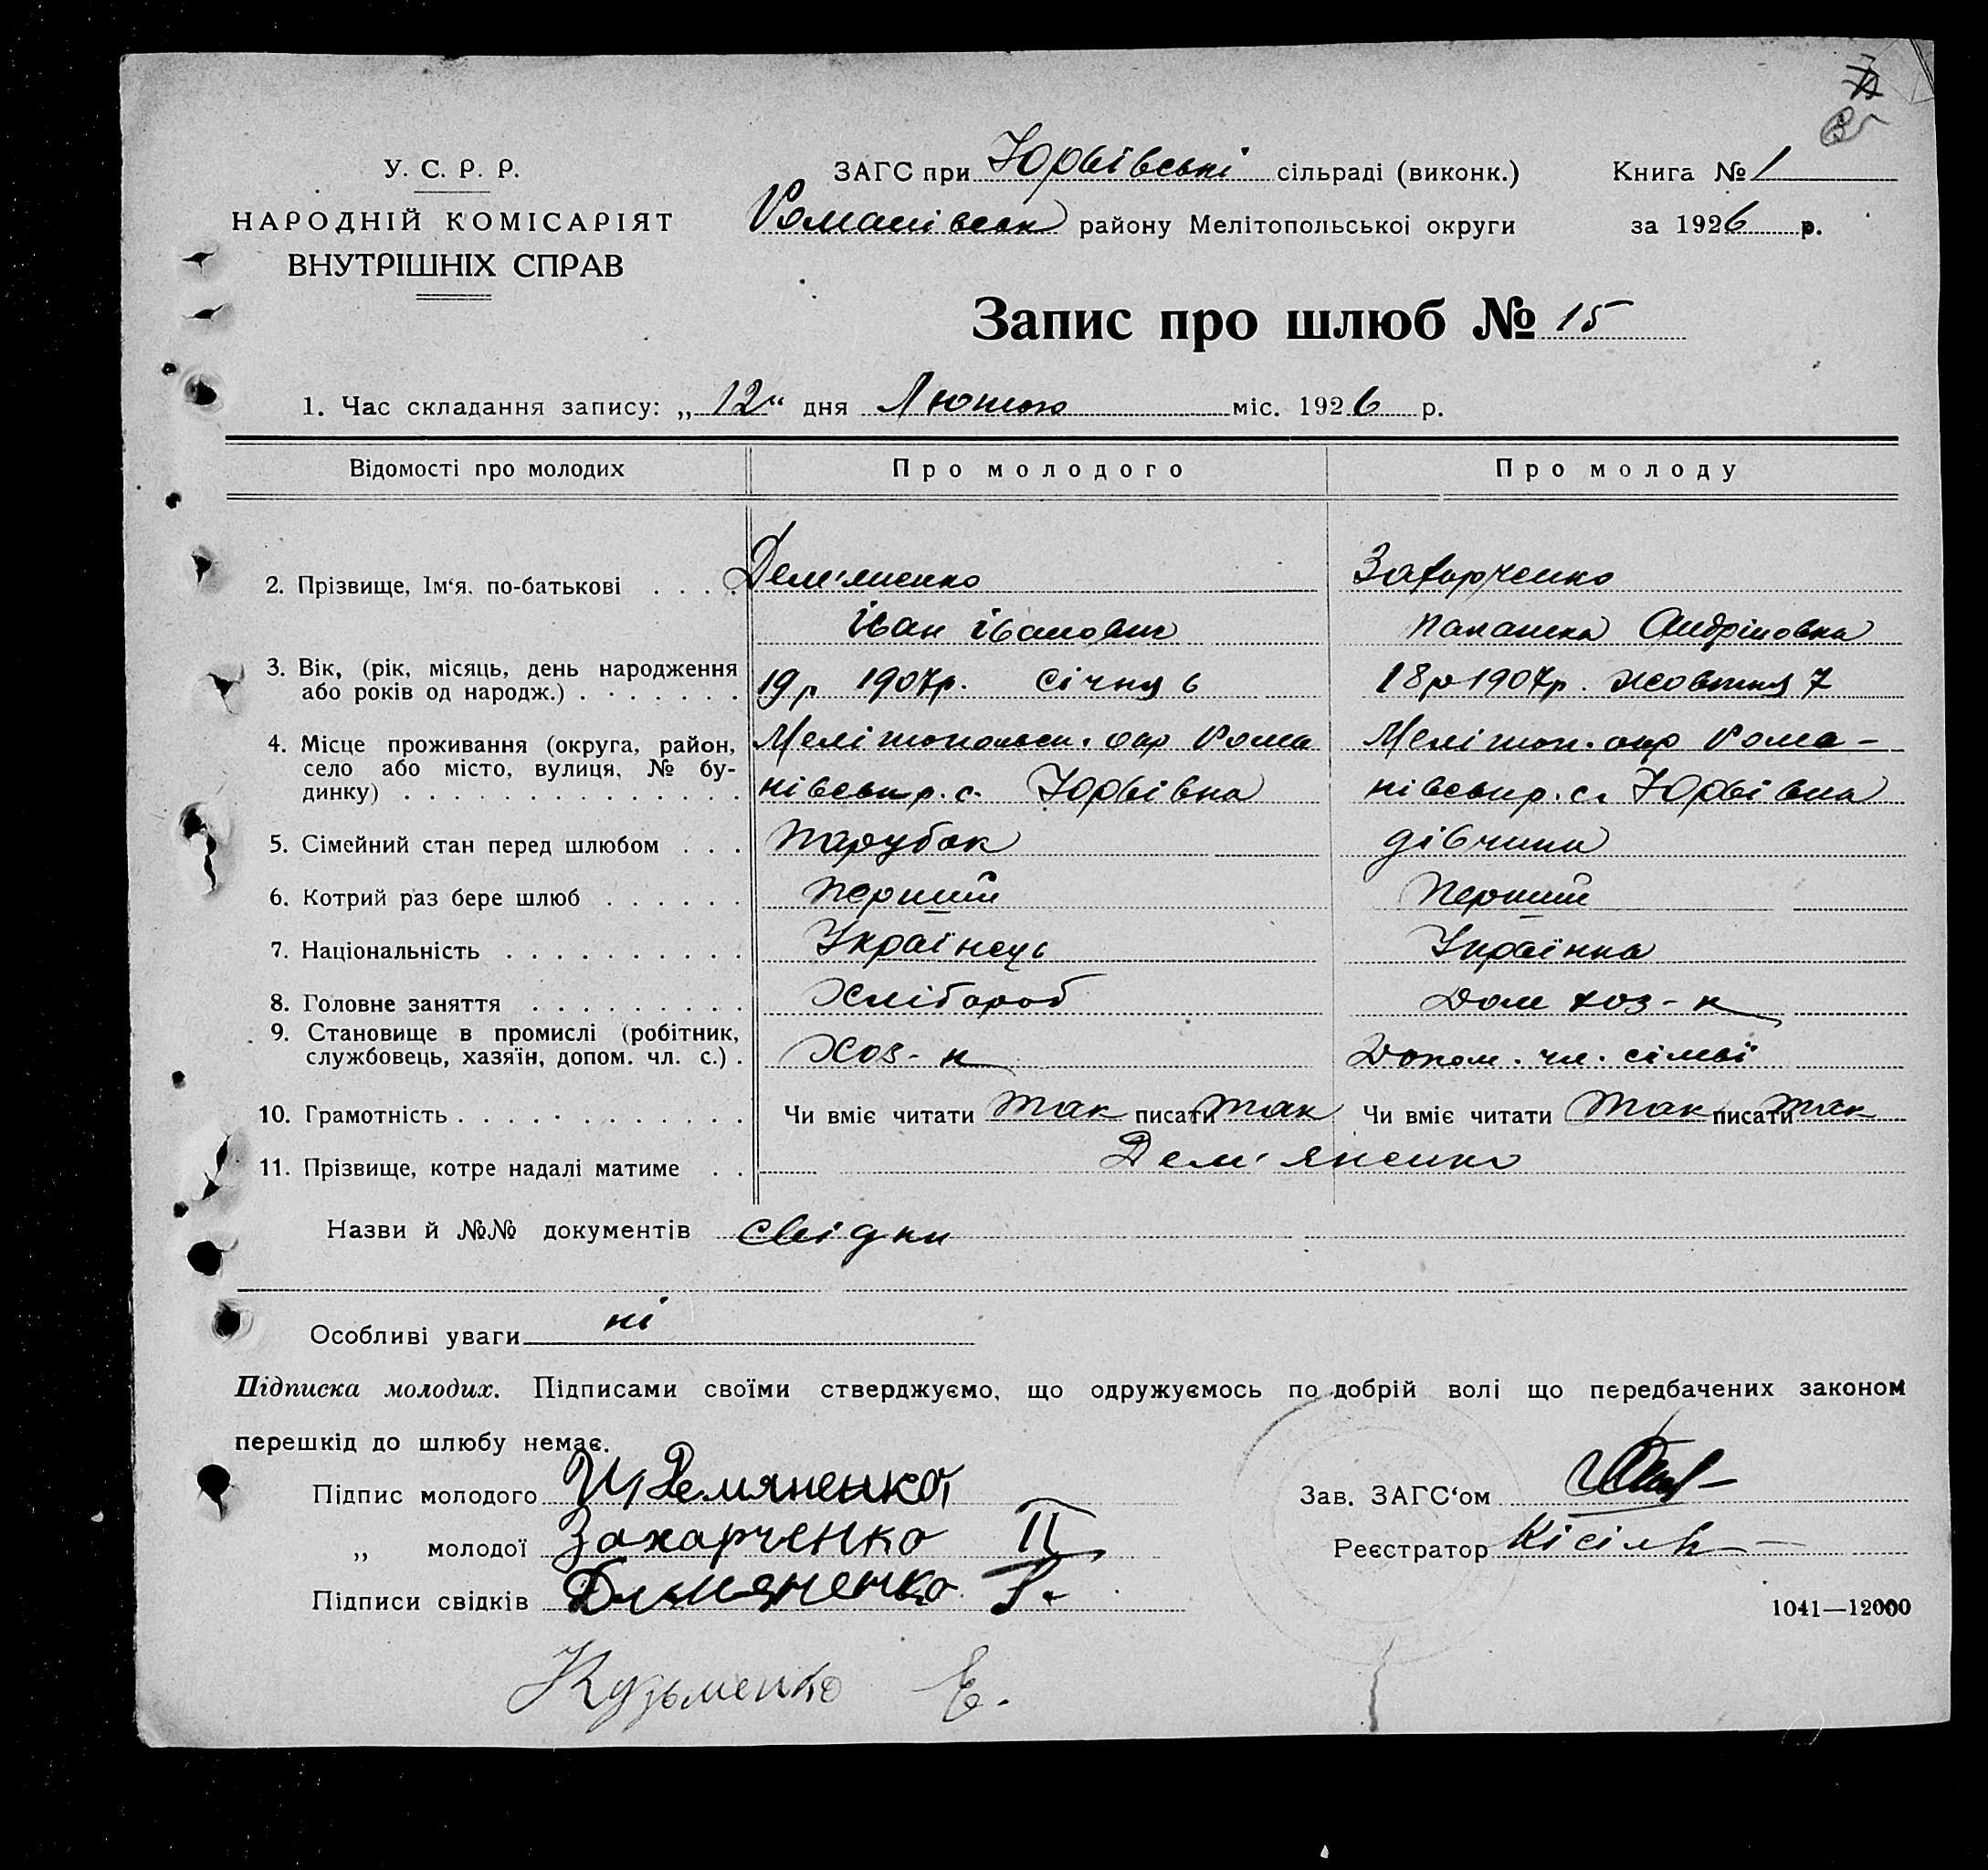 У. С. Р. Р.
НАРОДНІЙ КОМІСАРІЯТ
ВНУТРІШНІХ СПРАВ
ЗАГС при Юрьївські сільраді (виконк.)
Романівськ району Мелітопольськоі округи
Книга № 1
за 1926 р.
Запис про шлюб № 15
1. Час складання запису: „ 12 “ дня Лютого міс. 1926 р.
Відомості про молодих Про молодого Про молоду
2. Прізвище, Ім‘я. по-батькові . . . . Дем'яненко Захарченко
Іван Іванович Палашка Андріповна
3. Вік, (рік, місяць, день народження
або років од народж.) . . . . . . . 19р 1907р. Січня 6 18р 1907р. жовтня 7
4. Місце проживання (округа, район, Мелітопольськ. окр Рома Мелітоп. окр Рома-
село або місто, вулиця, № бу-
динку) . . . . . . . . . . . . . . нівськ р. с. Юрьівка нівськ р. с. Юрьівка
5. Сімейний стан перед шлюбом . . . Парубок дівчина
6. Котрий раз бере шлюб . . . . . . Перший Перший
7. Національність . . . . . . . . . . Українець Українка
8. Головне заняття . . . . . . . . . Хлібороб Дом хоз-к
9. Становище в промислі (робітник,
службовець, хазяїн, допом. чл. с.) . Хоз-н Допом. чл. сімьї
10. Грамотність . . . . . . . . . . . . Чи вміє читати так писати так Чи вміє читати так писати так
11. Прізвище, котре надалі матиме . . Дем'яненко
Назви й №№ документів свідки
Особливі уваги ні
Підписка молодих. Підписами своїми стверджуємо, що одружуємось по добрій волі що передбачених законом
перешкід до шлюбу немає.
Підпис молодого И Демяненко Зав. ЗАГС‘ом
„ молодої Захарченко П Реєстратор Кісіль
Підписи свідків Демяненко
1041—12000
Кузьменко Е.